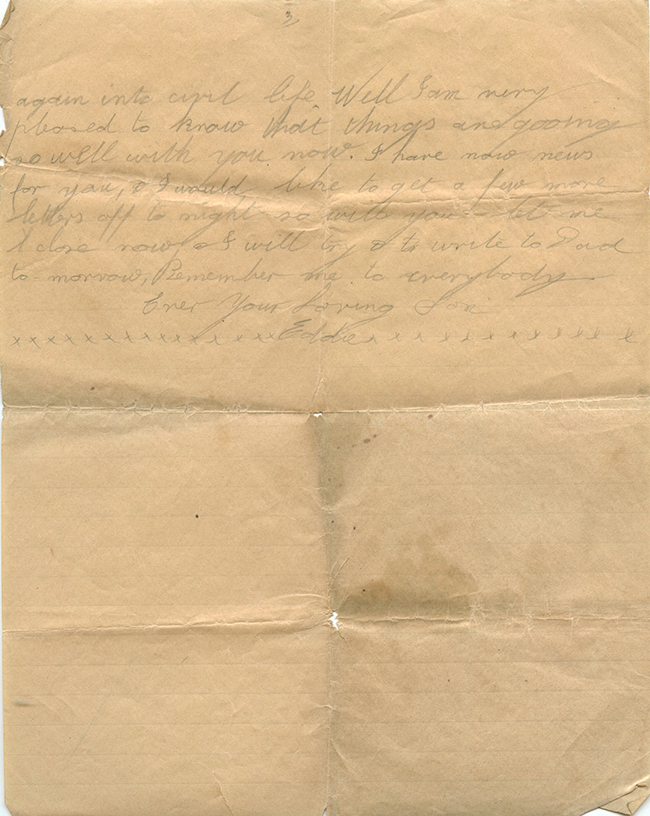 3
again into civil life. Well I am very
pleased to know that things are gooing
so well with you now. I have now news
for you, & I would like to get a few more
letters off to night so will you let me
close now & I will try & to write to Dad
to-morrow, Remember me to everybody
Ever Your Loving Son
xxxxxxxxxxxxxxxxxx Eddie xxxxxxxxxxxxxxx